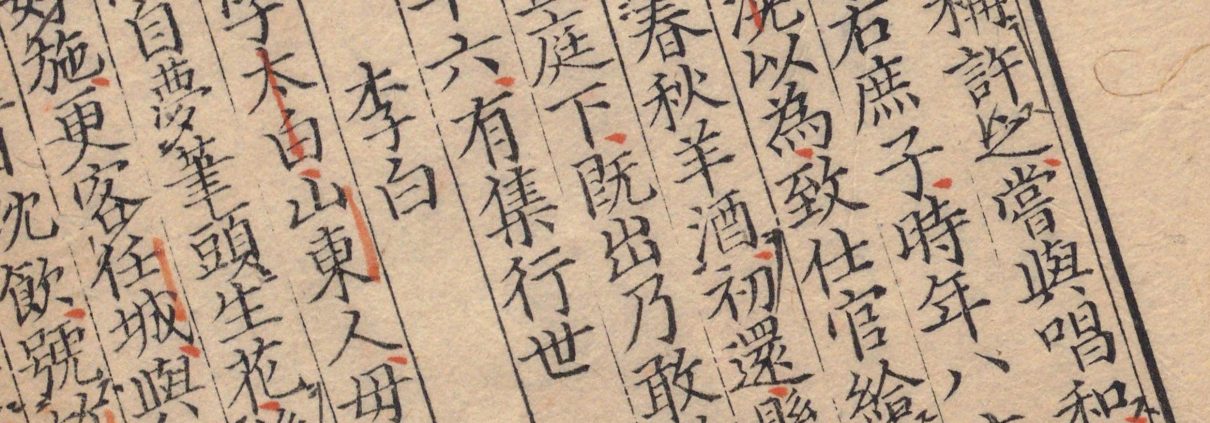 稱許之嘗與唱和
右庶子時年八
以為致仕官給
春秋羊酒初還縣
立庭下既出乃敢
十六有集行世
李白
字太白山東人母
自夢筆頭生花
好施更客任城與
日沈飲號